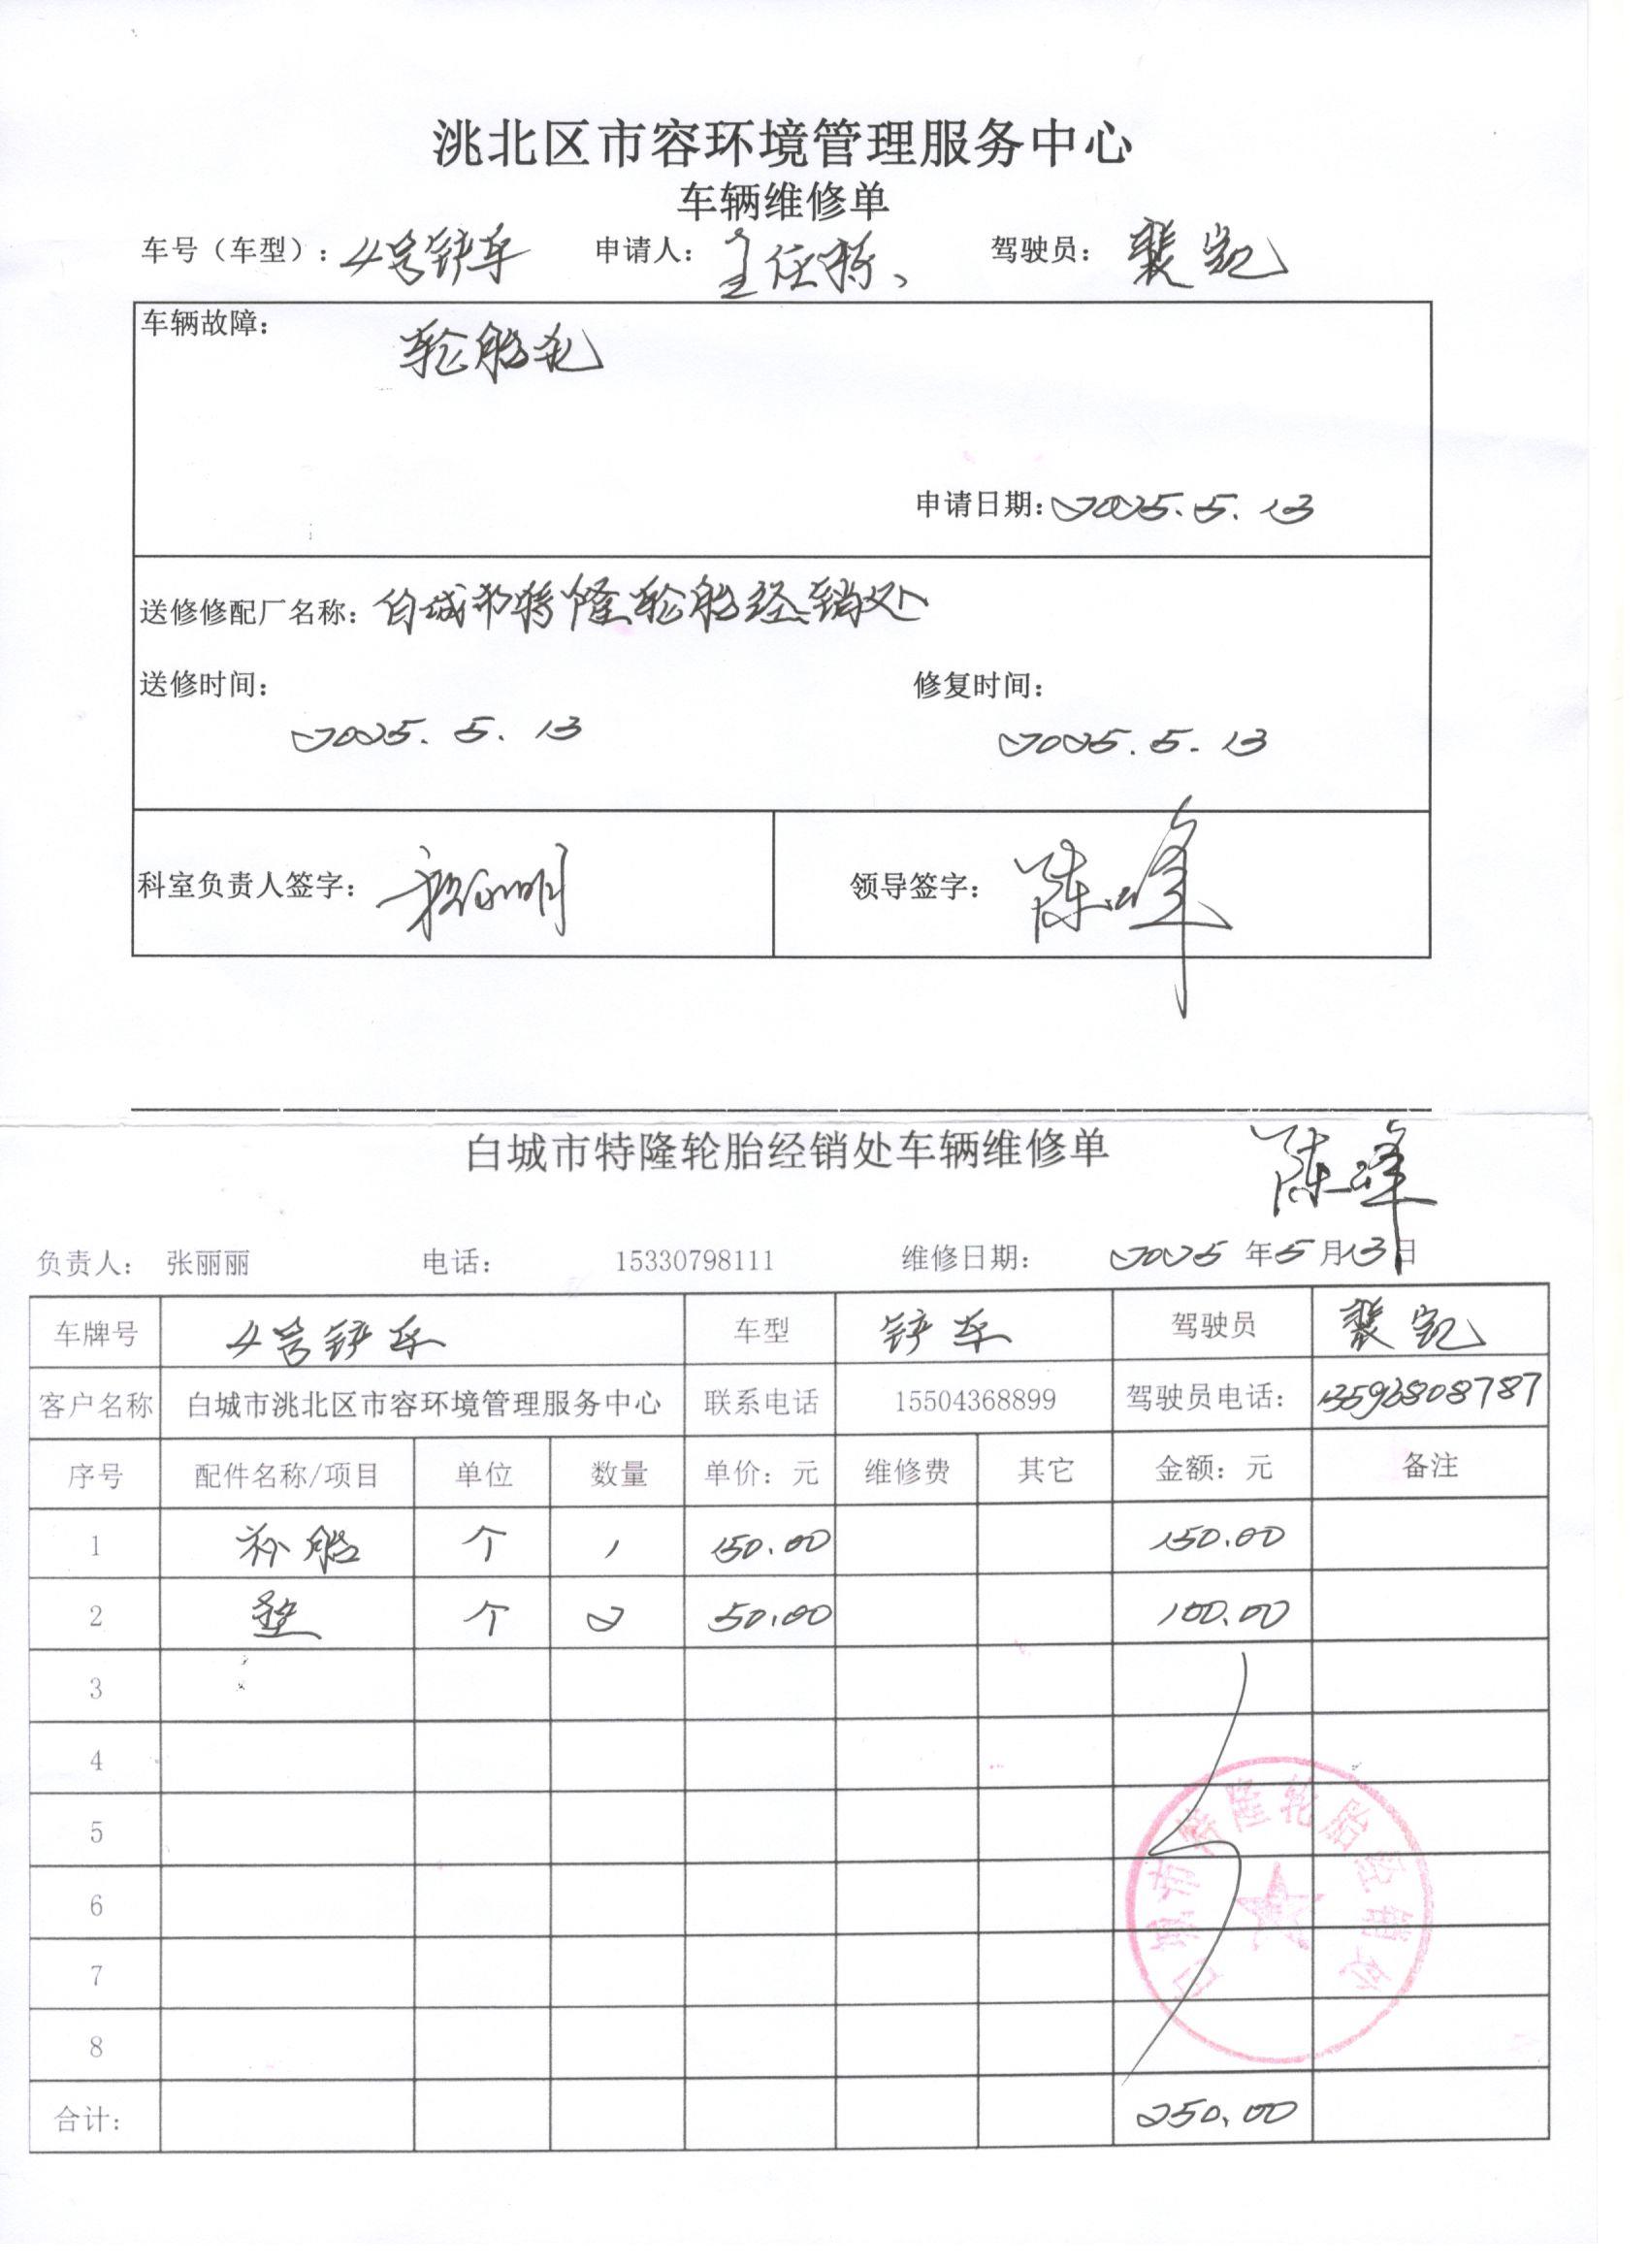 洮北区市容环境管理服务中心
车辆维修单
车号（车型）：4号铲车 申请人： 驾驶员：裴凯
车辆故障：
轮胎扎
申请日期：2025.5.13
送修修配厂名称：白城市特隆轮胎经销处
送修时间： 修复时间：
2025.5.13 2025.5.13
科室负责人签字： 领导签字：陈峰
白城市特隆轮胎经销处车辆维修单 陈峰
负责人： 张丽丽 电话： 15330798111 维修日期： 2025 年5月13日
车牌号 4号铲车 车型 铲车 驾驶员 裴凯
客户名称 白城市洮北区市容环境管理服务中心 联系电话 15504368899 驾驶员电话： 13593808787
序号 配件名称/项目 单位 数量 单价：元 维修费 其它 金额：元 备注
1 补胎 个 1 150.00 150.00
2 垫 个 2 50.00 100.00
3
4
5
6
7
8
合计： 250.00
白城市特隆轮胎经销处